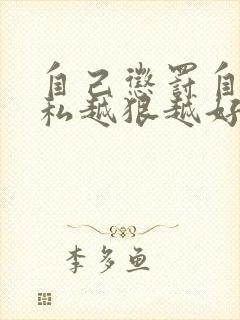 自己懲罰自
私越狠越好
李多鱼